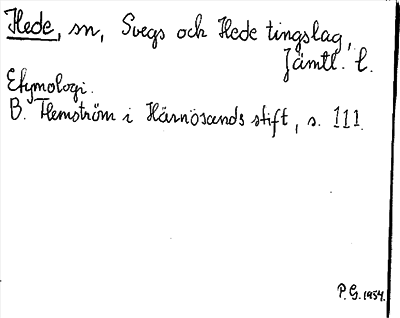 Hede, sn, Svegs och Hede tingslag,
Jämtl. l.
Etymologi.
B. Flemström i Härnösands stift, s. 111.
P. G. 1954.